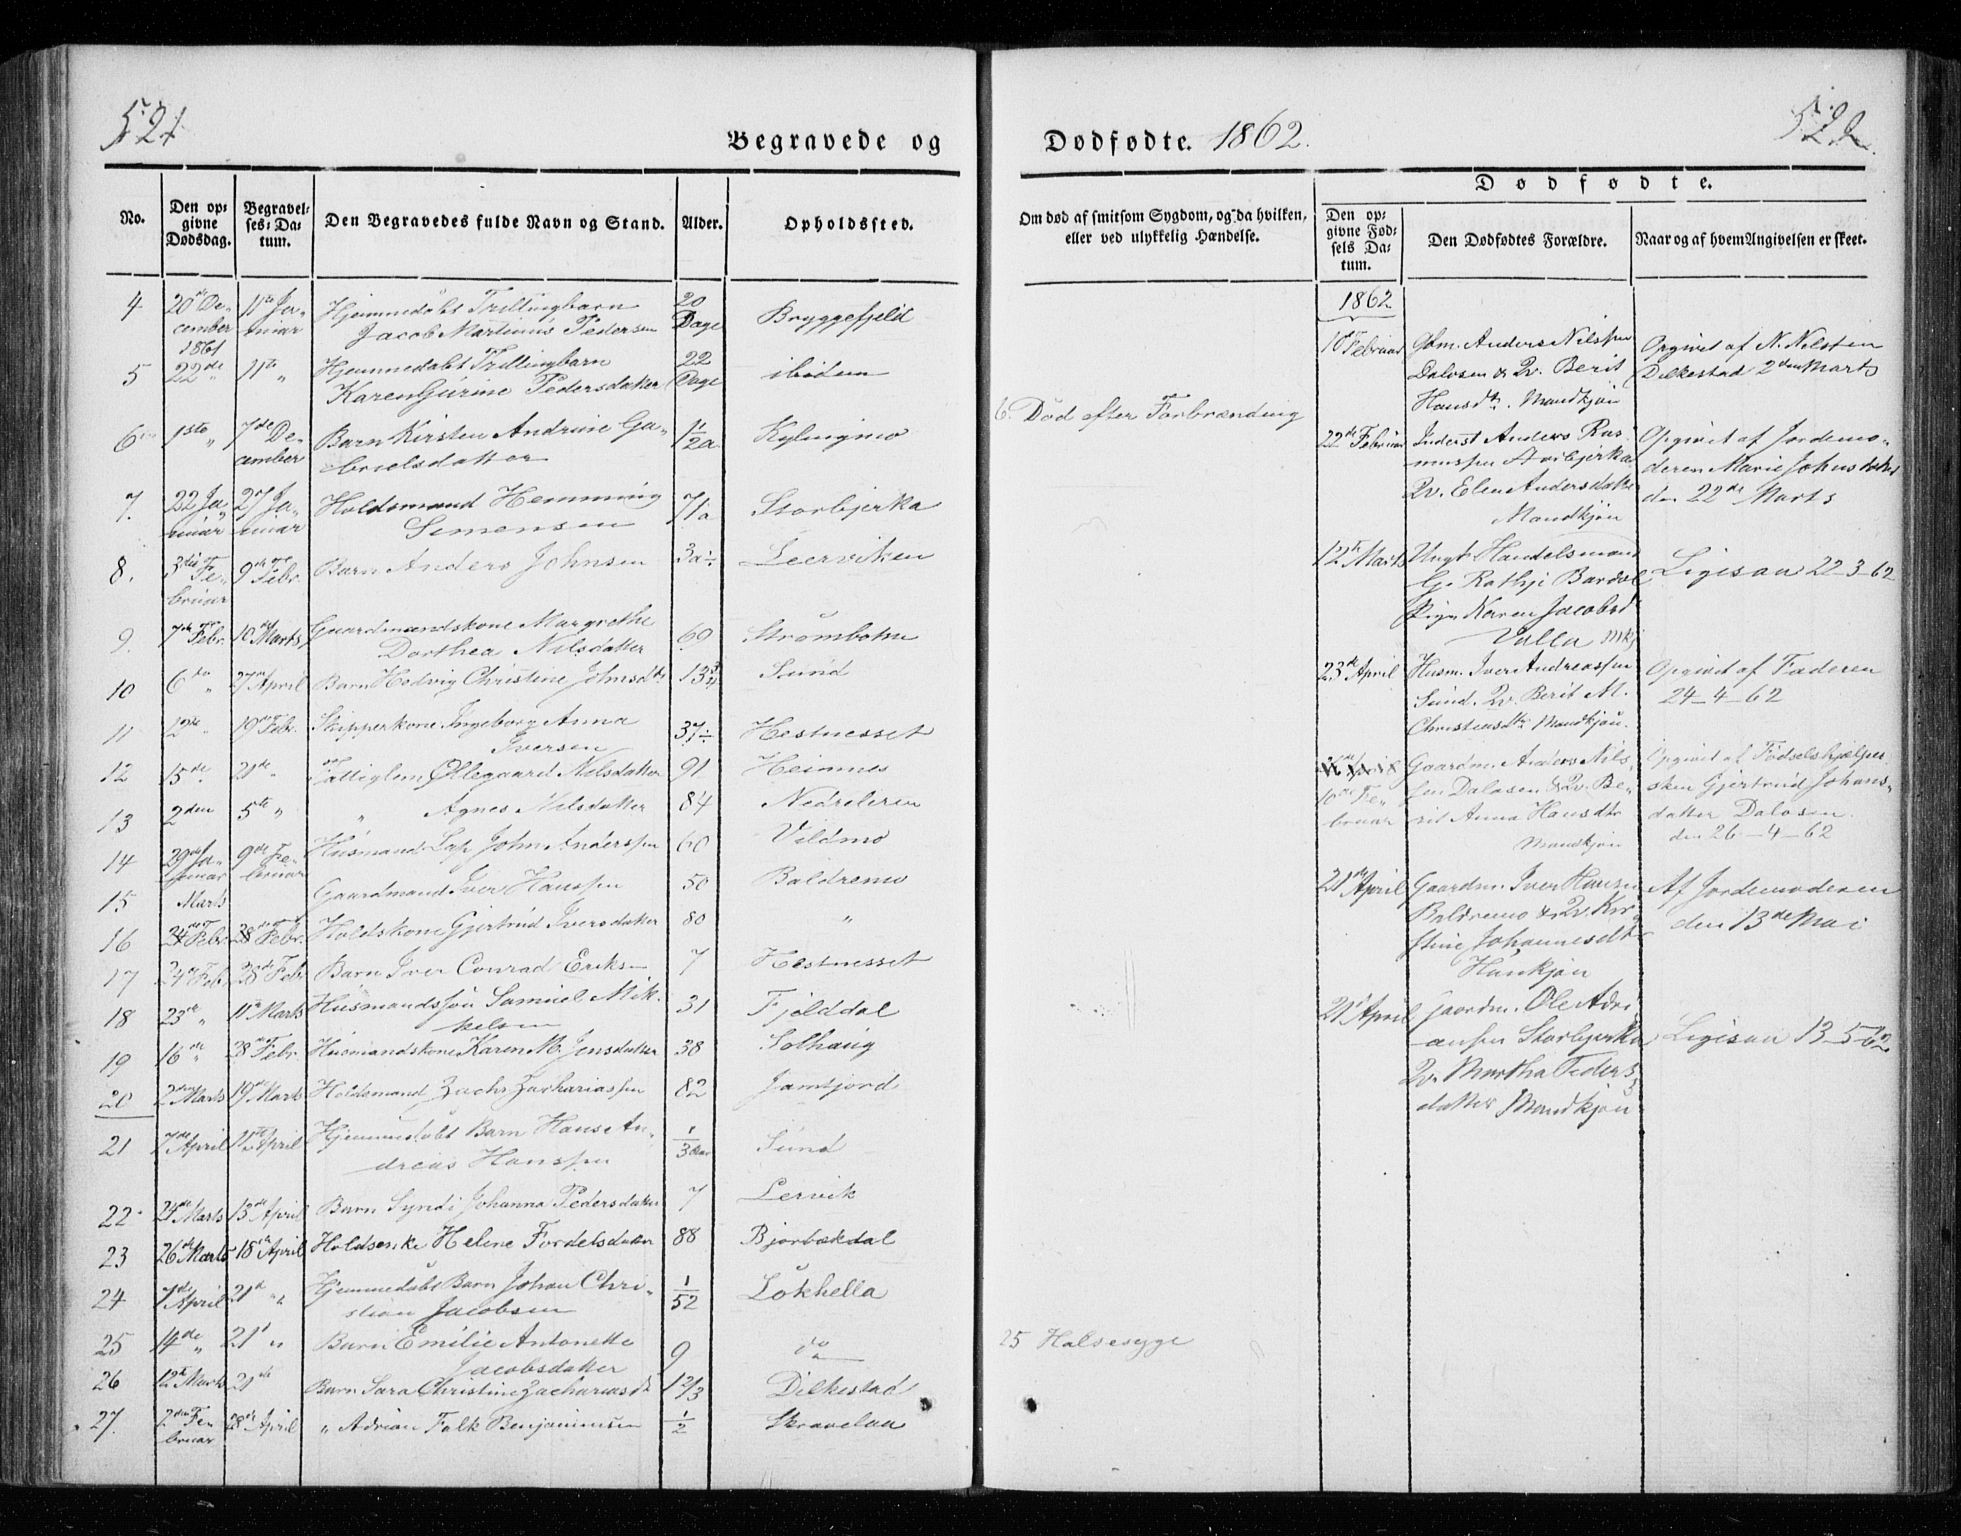 521
Begravede og
No.
Den opgivne Dødsdag.
Begravelses-Datum.
Den Begravedes fulde Navn og Stand.
Alder.
Opholdssted.
4 20de December 1861 11te Januar Hjemmedøbt Trillingbarn
Jacob Martinus Pedersen 20 Dage Bryggefjeld
5 22de " 11te " Hjemmedøbt Trillingbarn
Karen Gurine Pedersdatter 22 Dage ibidem
6 1ste " 7de December Barn Kirsten Andrine Ga-
brielsdatter 1 1/2 a Kylingmo
7. 22 Januar 27 Januar Holdsmand Hemming
Simensen 71a Storbjerka
8. 3die Februar 9de Febr. Barn Anders Johnsen 3a Leerviken
9. 7de Febr. 10de Marts Gaardmandskone Margrethe
Dorthea Nilsdatter 69 Strømbotne
10 6te " 27 April Barn Hedvig Christine Johnsdtr 13 Sund
11 12te " 19de Febr. Skipperkone Ingeborg Anna
Iversen 37 Hestnesset
12 15de " 21de " Fattiglem Øllegaard Nilsdatter 91 Heimnes
13 2den 5te " " Agnes Nilsdatter 84 Nedreleren
14 29de Januar 9de Februar Husmand Lap John Anderssen 60 Vildmo
15 Marts Gaardmand Iver Hanssen 50 Baldremo
16 24de Febr. 28de Febr. Holdskone Gjertrud Iversdatter 80 "
17 24de Feb. 28de Feb Barn Iver Conrad Eriksen 7 Hestnesset
18 23de " 11te Marts Husmandssøn Samuel Mik-
kelsen 31 Fjelddal
19 16de " 28de Febr. Husmandskone Karen M. Jensdatter 38 Solhaug
20 2den Marts 19 Marts Holdsmand Zachr. Zachariassen 82 Jamtjord
21 7de April 11te April Hjemmedøbt Barn Hans An-
dreas Hanssen 1/3 Sund
22 24de Marts 13de April Barn Synd Johanna Pedersdatter 7 Lervik
23 26de Marts 18de April Holdsenke Helene Fordelsdatter 88 Bjørbækdal
24 7de April 21de " Hjemmedøbt Barn Johan Chri-
stian Jacobsen 1/52 Løkhella
25 14de " 21de " Barn Emilie Antonette
Jacobsdatter 9 do
26 12te Marts 21de Barn Sara Christine Zachariasdtr 1 2/3 Dilkestad
27. 2den Februar 28de April " Adrian Falk Benjaminsen 1/2 Skravelaa
Dødfødte. 1862.
522
Om død af smitsom Sygdom, og da hvilken,
eller ved ulykkelig Hændelse.
6. Død efter Forbrænding
25 Halsesyge
Dødfødte.
Den opgivne Fødsels Datum.
Den Dødfødtes Forældre.
Naar og af hvem Angivelsen er skeet.
1862
10de Februar Gdm. Anders Nilssen
Dalosen & Qv. Berit
Hansdtr. Mandkjøn
Opgivet af N. Nilssen
Dilkestad 2den Marts
22de Februar Inderst Anders Ras-
mussen Storbjerka
Qv. Elen Andersdatter
Mandkjøn
Opgivet af Jordemo-
deren Marie Johnsdatter
den 22de Marts
12te Marts Ungk. Handelsmand
G. Rathje Bardal
Pige Karen Jacobsdtr
Valla Mkj
Ligesaa 22-3-62
23de April Husm. Iver Andreassen
Sund. Qv. Berit M.
Christensdtr. Mandkjøn.
Opgivet af Faderen
24-4-62
10de Februar Gaardm. Anders Nils-
sen Dalosen & Qv. Be-
rit Anna Hansdtr
Mandkjøn
Opgivet af Fødselshjælper-
sken Gjertrud Johans-
datter Dalosen.
den 26-4-62
21de April Gaardm. Iver Hansen
Baldremo & Qv. Kir-
stine Johannesdtr
Hunkjøn
Af Jordemoderen
den 13de Mai
21de April Gaardm. Ole Adri-
ansen Storbjerka
Qv. Martha Peders-
datter Mandkjøn
Ligesaa 13-5-62